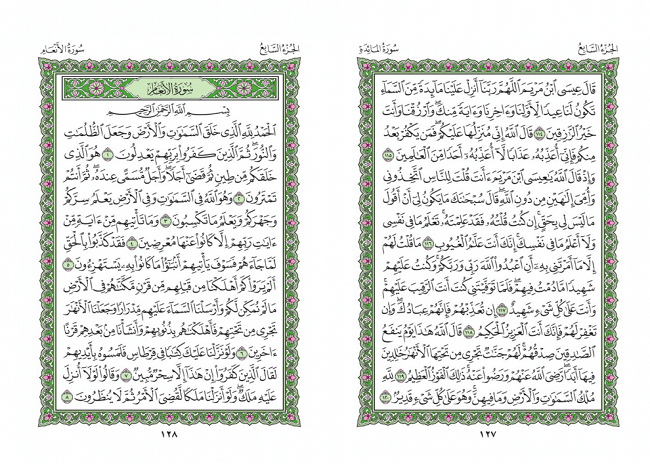 الجزء السابع
سورة المائدة
قَالَ عِيسَى ابْنُ مَرْيَمَ اللَّهُمَّ رَبَّنَا أَنزِلْ عَلَيْنَا مَائِدَةً مِّنَ السَّمَاءِ
تَكُونُ لَنَا عِيدًا لِّأَوَّلِنَا وَءَاخِرِنَا وَءَايَةً مِّنكَ وَارْزُقْنَا وَأَنتَ
خَيْرُ الرَّازِقِينَ ١١٤ قَالَ اللَّهُ إِنِّي مُنَزِّلُهَا عَلَيْكُمْ فَمَن يَكْفُرْ بَعْدُ
مِنكُمْ فَإِنِّي أُعَذِّبُهُ عَذَابًا لَّا أُعَذِّبُهُ أَحَدًا مِّنَ الْعَالَمِينَ ١١٥
وَإِذْ قَالَ اللَّهُ يَاعِيسَى ابْنَ مَرْيَمَ ءَأَنتَ قُلْتَ لِلنَّاسِ اتَّخِذُونِي
وَأُمِّيَ إِلَاهَيْنِ مِن دُونِ اللَّهِ قَالَ سُبْحَانَكَ مَا يَكُونُ لِي أَنْ أَقُولَ
مَا لَيْسَ لِي بِحَقٍّ إِن كُنتُ قُلْتُهُ فَقَدْ عَلِمْتَهُ تَعْلَمُ مَا فِي نَفْسِي
وَلَا أَعْلَمُ مَا فِي نَفْسِكَ إِنَّكَ أَنتَ عَلَّامُ الْغُيُوبِ ١١٦ مَا قُلْتُ لَهُمْ
إِلَّا مَا أَمَرْتَنِي بِهِ أَنِ اعْبُدُوا اللَّهَ رَبِّي وَرَبَّكُمْ وَكُنتُ عَلَيْهِمْ
شَهِيدًا مَّا دُمْتُ فِيهِمْ فَلَمَّا تَوَفَّيْتَنِي كُنتَ أَنتَ الرَّقِيبَ عَلَيْهِمْ
وَأَنتَ عَلَى كُلِّ شَيْءٍ شَهِيدٌ ١١٧ إِن تُعَذِّبْهُمْ فَإِنَّهُمْ عِبَادُكَ وَإِن
تَغْفِرْ لَهُمْ فَإِنَّكَ أَنتَ الْعَزِيزُ الْحَكِيمُ ١١٨ قَالَ اللَّهُ هَذَا يَوْمُ يَنفَعُ
الصَّادِقِينَ صِدْقُهُمْ لَهُمْ جَنَّاتٌ تَجْرِي مِن تَحْتِهَا الْأَنْهَارُ خَالِدِينَ
فِيهَا أَبَدًا رَّضِيَ اللَّهُ عَنْهُمْ وَرَضُوا عَنْهُ ذَلِكَ الْفَوْزُ الْعَظِيمُ ١١٩ لِلَّهِ
مُلْكُ السَّمَاوَاتِ وَالْأَرْضِ وَمَا فِيهِنَّ وَهُوَ عَلَى كُلِّ شَيْءٍ قَدِيرٌ ١٢٠
١٢٧
الجزء السابع
سورة الأنعام
سورة الأنعام
بِسْمِ اللَّهِ الرَّحْمَنِ الرَّحِيمِ
الْحَمْدُ لِلَّهِ الَّذِي خَلَقَ السَّمَاوَاتِ وَالْأَرْضَ وَجَعَلَ الظُّلُمَاتِ
وَالنُّورَ ثُمَّ الَّذِينَ كَفَرُوا بِرَبِّهِمْ يَعْدِلُونَ ١ هُوَ الَّذِي
خَلَقَكُم مِّن طِينٍ ثُمَّ قَضَى أَجَلًا وَأَجَلٌ مُّسَمًّى عِندَهُ ثُمَّ أَنتُمْ
تَمْتَرُونَ ٢ وَهُوَ اللَّهُ فِي السَّمَاوَاتِ وَفِي الْأَرْضِ يَعْلَمُ سِرَّكُمْ
وَجَهْرَكُمْ وَيَعْلَمُ مَا تَكْسِبُونَ ٣ وَمَا تَأْتِيهِم مِّنْ ءَايَةٍ مِّنْ
ءَايَاتِ رَبِّهِمْ إِلَّا كَانُوا عَنْهَا مُعْرِضِينَ ٤ فَقَدْ كَذَّبُوا بِالْحَقِّ
لَمَّا جَاءَهُمْ فَسَوْفَ يَأْتِيهِمْ أَنبَاءُ مَا كَانُوا بِهِ يَسْتَهْزِءُونَ ٥
أَلَمْ يَرَوْا كَمْ أَهْلَكْنَا مِن قَبْلِهِم مِّن قَرْنٍ مَّكَّنَّاهُمْ فِي الْأَرْضِ
مَا لَمْ نُمَكِّن لَّكُمْ وَأَرْسَلْنَا السَّمَاءَ عَلَيْهِم مِّدْرَارًا وَجَعَلْنَا الْأَنْهَارَ
تَجْرِي مِن تَحْتِهِمْ فَأَهْلَكْنَاهُم بِذُنُوبِهِمْ وَأَنشَأْنَا مِن بَعْدِهِمْ قَرْنًا
ءَاخَرِينَ ٦ وَلَوْ نَزَّلْنَا عَلَيْكَ كِتَابًا فِي قِرْطَاسٍ فَلَمَسُوهُ بِأَيْدِيهِمْ
لَقَالَ الَّذِينَ كَفَرُوا إِنْ هَذَا إِلَّا سِحْرٌ مُّبِينٌ ٧ وَقَالُوا لَوْلَا أُنزِلَ
عَلَيْهِ مَلَكٌ وَلَوْ أَنزَلْنَا مَلَكًا لَّقُضِيَ الْأَمْرُ ثُمَّ لَا يُنظَرُونَ ٨
١٢٨